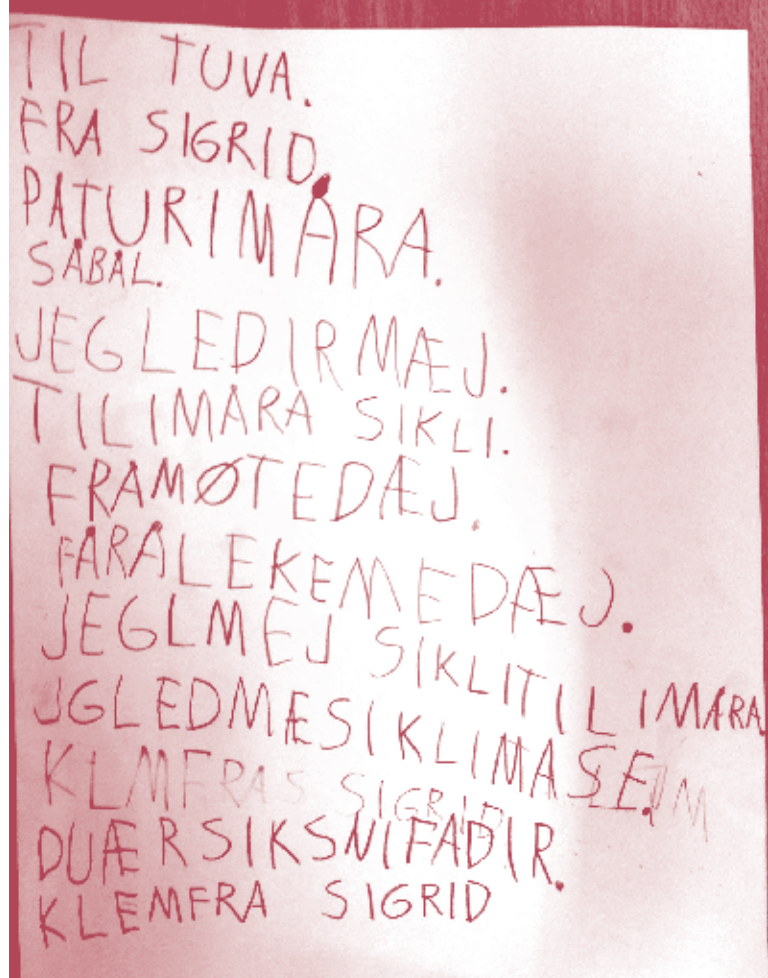 TIL TUVA.
FRA SIGRID.
PÅTURIMÅRA.
SÅBAL.
JEGLEDIRMÆJ.
TILIMÅRA SIKLI.
FRAMØTEDÆJ.
FÅRÅLEKEMEDÆJ.
JEGLMEJ SIKLITILIMÅRA
JGLEDMÆSIKLIMASE.
KLMFRAS SIGRID
DUÆRSIKSNIFADIR.
KLEMFRA SIGRID